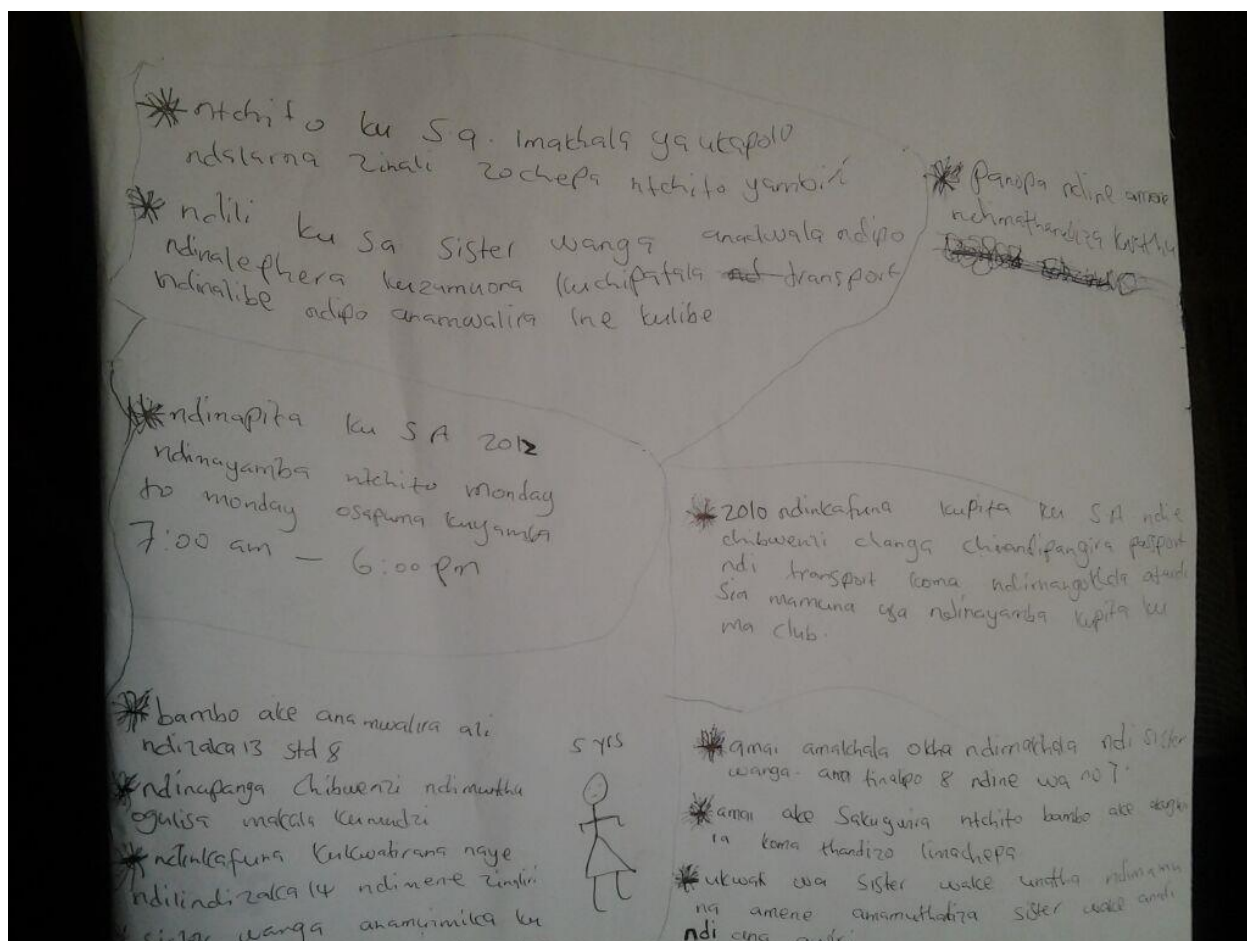 * ntchito ku S.a. Imakhala ya ukapolo
ndalama zinali zochepa ntchito yambiri
* ndili ku Sa sister wanga anadwala ndipo
ndinalephera kuzamuona kuchipatala nd transport
ndinalibe ndipo anamwalira ine kulibe
* Panopa ndine amene
ndimathandiza kwithu
* ndinapita ku SA 2012
ndinayamba ntchito monday
to monday osapuma kuyamba
7:00 am — 6:00 pm
* 2010 ndinkafuna kupita ku SA ndie
chibwenzi changa chinandipangira passport
ndi transport koma
mamuna uja ndinayamba kupita ku
ma club.
* bambo ake anamwalira ali
ndizaka 13 std 8
* ndinapanga Chibwenzi ndimunthu
ogulisa makala kumudzi
* ndinkafuna kukwatirana naye
ndilindizaka 14 ndimene zinaliri
sister wanga anamuimika ku
5 yrs
* amai amakhala okha ndimakhala ndi sister
wanga. ana tinalipo 8 ndine wa no 7.
* amai ake Sakugwira ntchito bambo ake
koma thandizo limachepa
* ukwati wa Sister wake unatha
na amene amamuthadiza sister wake anali
ndi ana